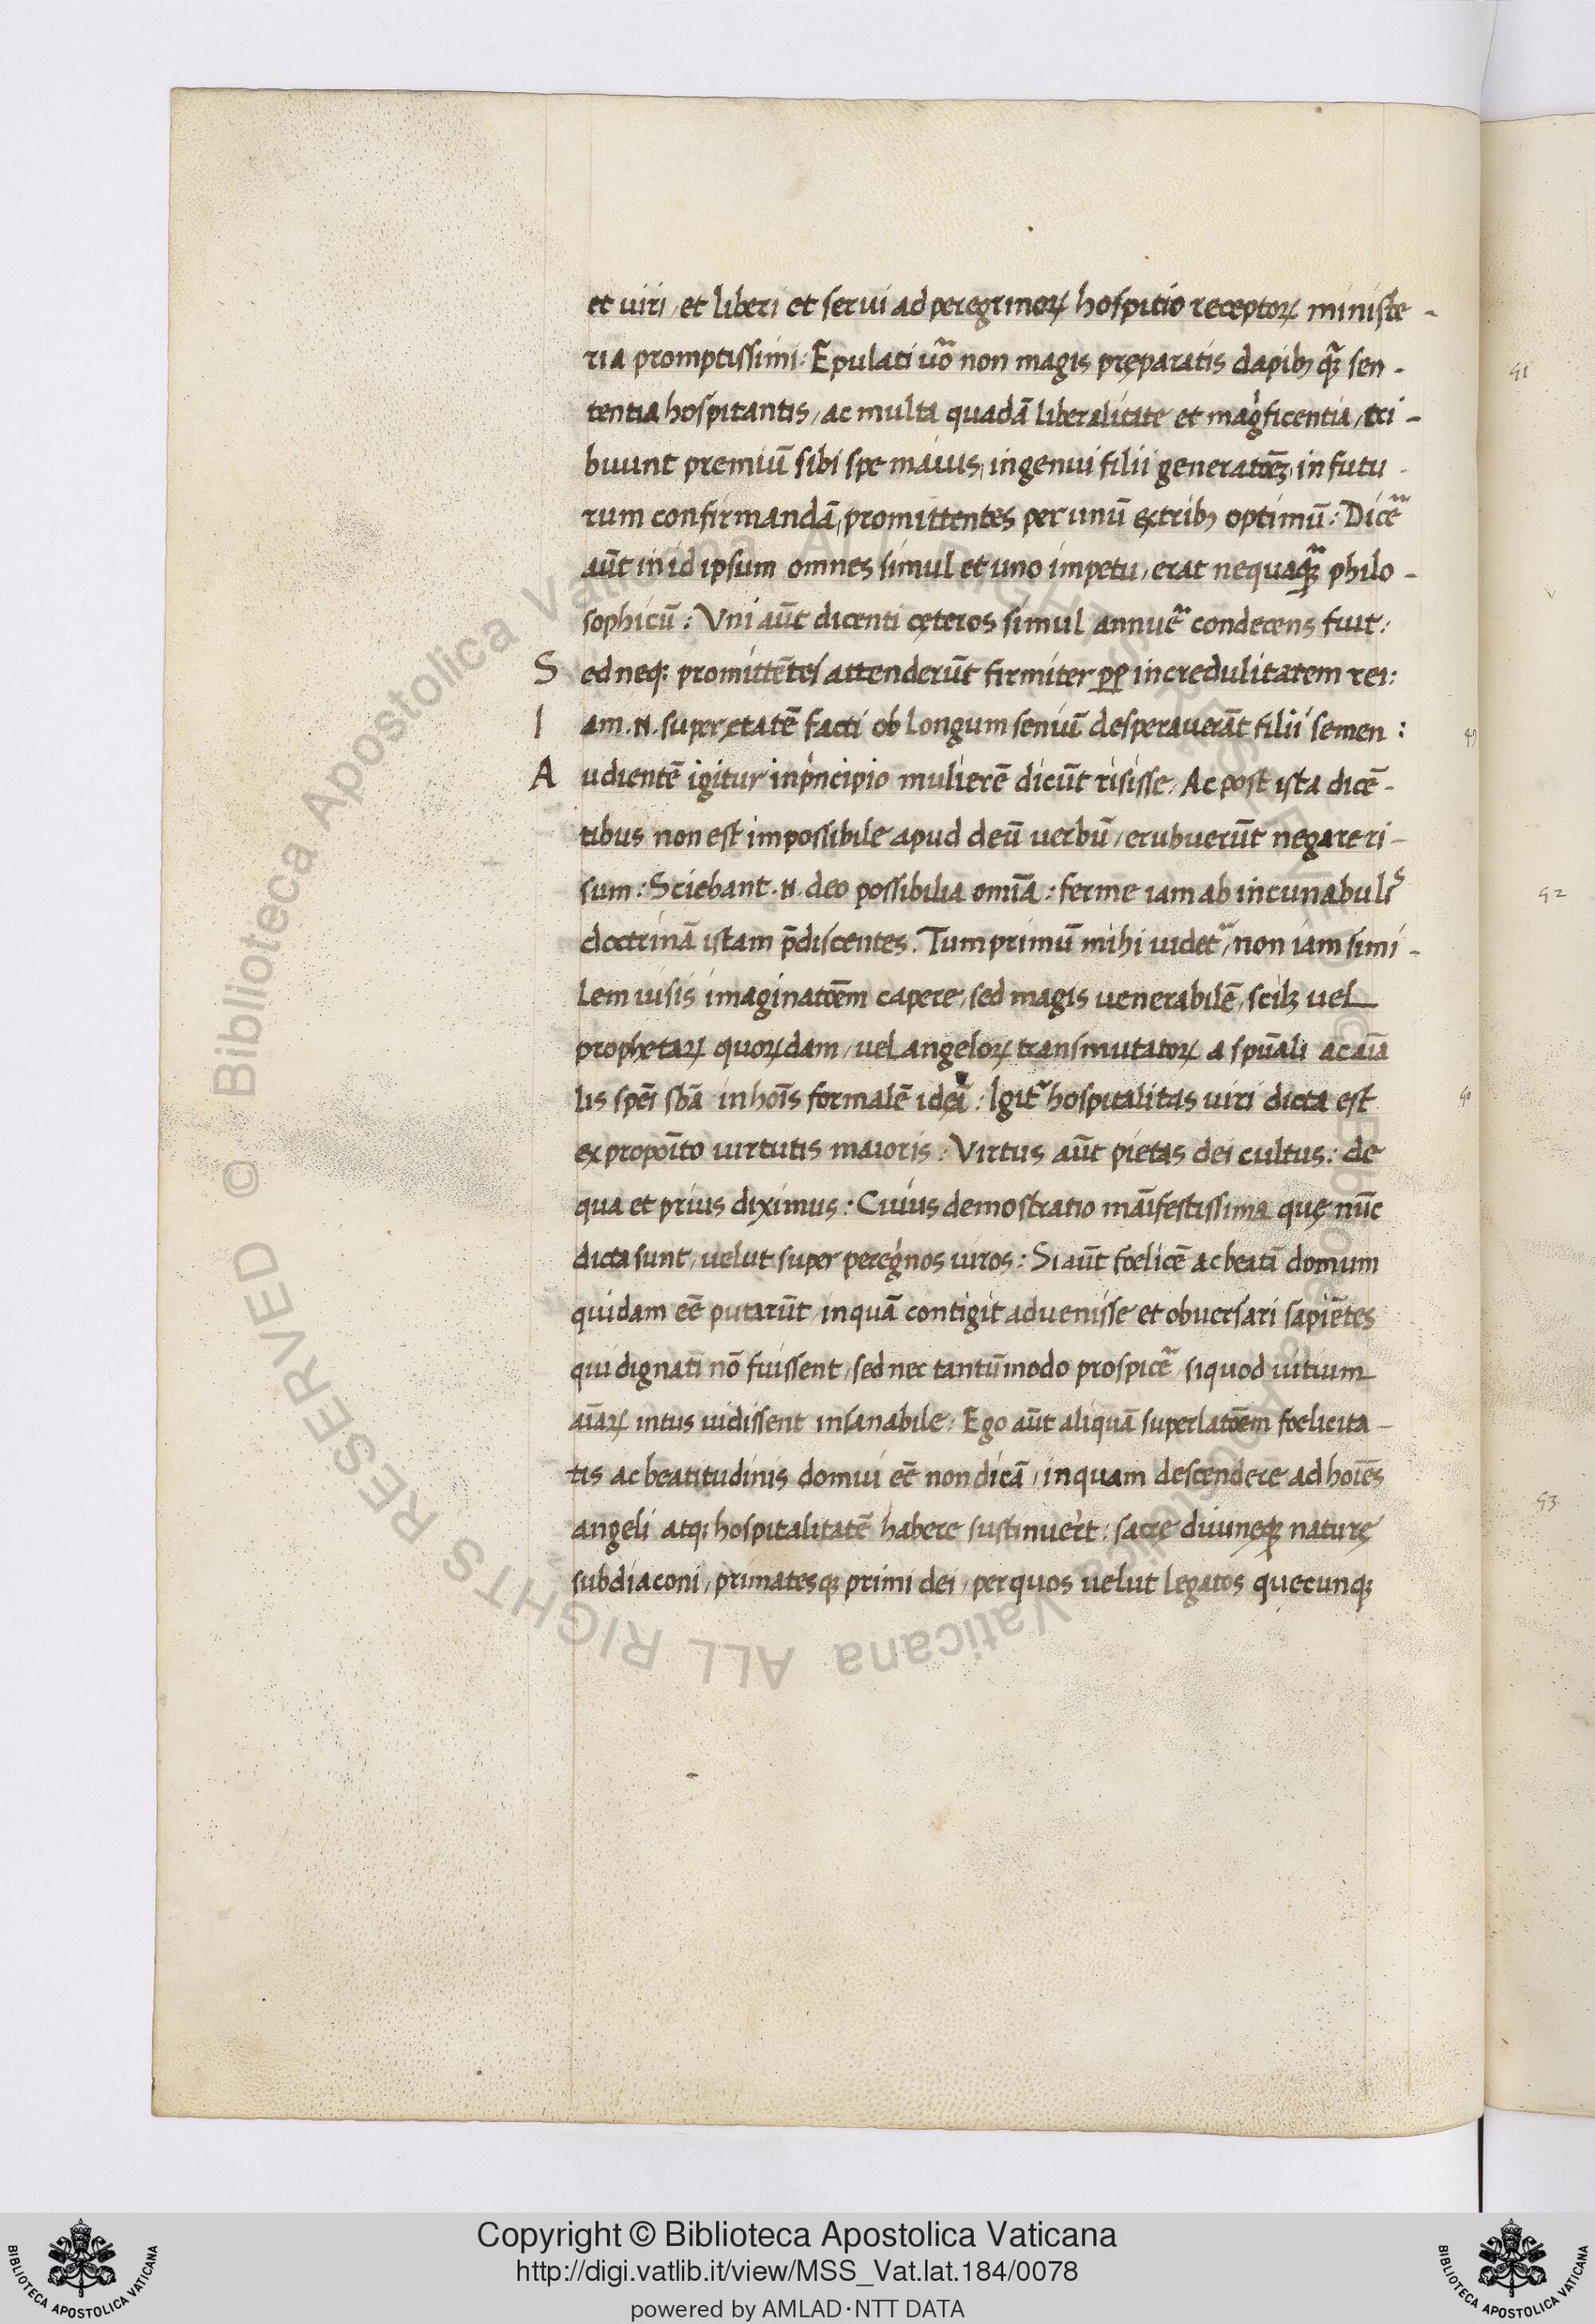 et uiri, et liberi et serui ad peregrinoꝝ hospitio receptoꝝ ministe-
ria promptissimi: Epulati uoᷓ non magis pręparatis dapibꝫ qᷓꝫ sen-
tentia hospitantis, ac multa quadā liberalitate et mag'ficentia, tri-
buunt premiū sibi spe maius, ingenui filii generatōeꝫ, in futu-
rum confirmandā, promittentes per unū ex tribꝫ optimū: Diceᷓ
aūt in id ipsum omnes simul et uno impetu, erat nequaqᷓꝫ philo-
sophicū: Vni aūt dicenti cęteros simul annueᷓ condecens fuit:
Sed neqꝫ promittētes attenderūt firmiter ꝓꝑ incredulitatem rei:
Iam .N. super ętatē facti ob longum seniū desperauerāt filii semen:
Audientē igitur in p'ncipio mulierē dicūt risisse, Ac post ista dicē-
tibus non est impossibile apud deū uerbū, erubuerūt negare ri-
sum: Sciebant .N. deo possibilia omīa: ferme iam ab incunabulis
doctrinā istam p̄discentes. Tum primū mihi uidet᷑, non iam simi-
lem uisis imaginatōem capere, sed magis uenerabilē, scilꝫ uel
prophetaꝝ quoꝝdam, uel angeloꝝ transmutatoꝝ a spūali ac aīa
lis spēi sbā in hoīs formalē ideā: Igit᷑ hospitalitas uiri dicta est
ex propoīto uirtutis maioris: Virtus aūt pietas dei cultus: de
qua et prius diximus: Cuius demostratio māifestissima quę nūc
dicta sunt, uelut super pereg'nos uiros: Si aūt foelicē ac beatā domum
quidam eē putarūt, in quā contigit aduenisse et obuersari sapiētes
qui dignati nō fuissent, sed nec tantūmodo prospiceᷓ, si quod uitium
aīaꝝ intus uidissent insanabile: Ego aūt aliquā superlatōem foelicita-
tis ac beatitudinis domui eē non dicā, in quam descendere ad hoīes
angeli atqꝫ hospitalitatē habere sustinuer̄t: sacrę diuinęqꝫ naturę
subdiaconi, primatesqꝫ primi dei, per quos uelut legatos quecunqꝫ
51
49
52
50
53
© Biblioteca Apostolica Vaticana ALL RIGHTS RESERVED
Copyright © Biblioteca Apostolica Vaticana
http://digi.vatlib.it/view/MSS_Vat.lat.184/0078
powered by AMLAD·NTT DATA
BIBLIOTECA APOSTOLICA VATICANA
BIBLIOTECA APOSTOLICA VATICANA